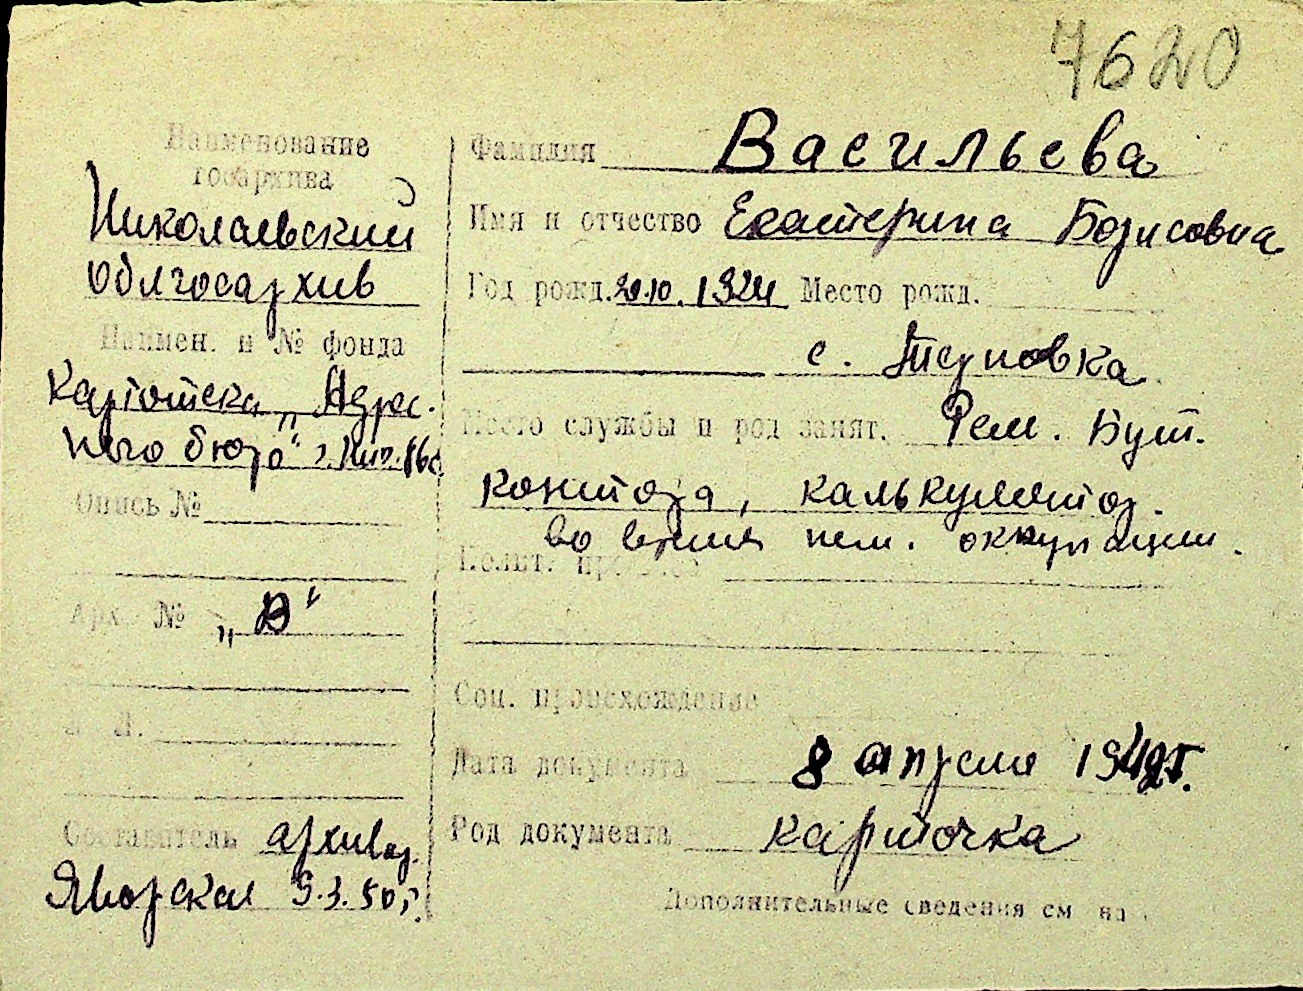 7620
Наименование
госархива
Николаевский
облгосархив
Наимен. и № фонда
картотека „Адрес-
ного бюро"
Опись №
Арх. № „В"
Л. Л.
Составитель архивар.
Яворская 9.3.50 г.
Фамилия Васильева
Имя и отчество Екатерина Борисовна
Год рожд. 20.10. 1924 Место рожд.
с. Терновка
Место службы и род занят. Рем. Бут.
контора, калькулятор.
во время нем. оккупации.
Соц. происхождение
Дата документа 8 апреля 1942 г.
Род документа карточка
Дополнительные сведения см. на